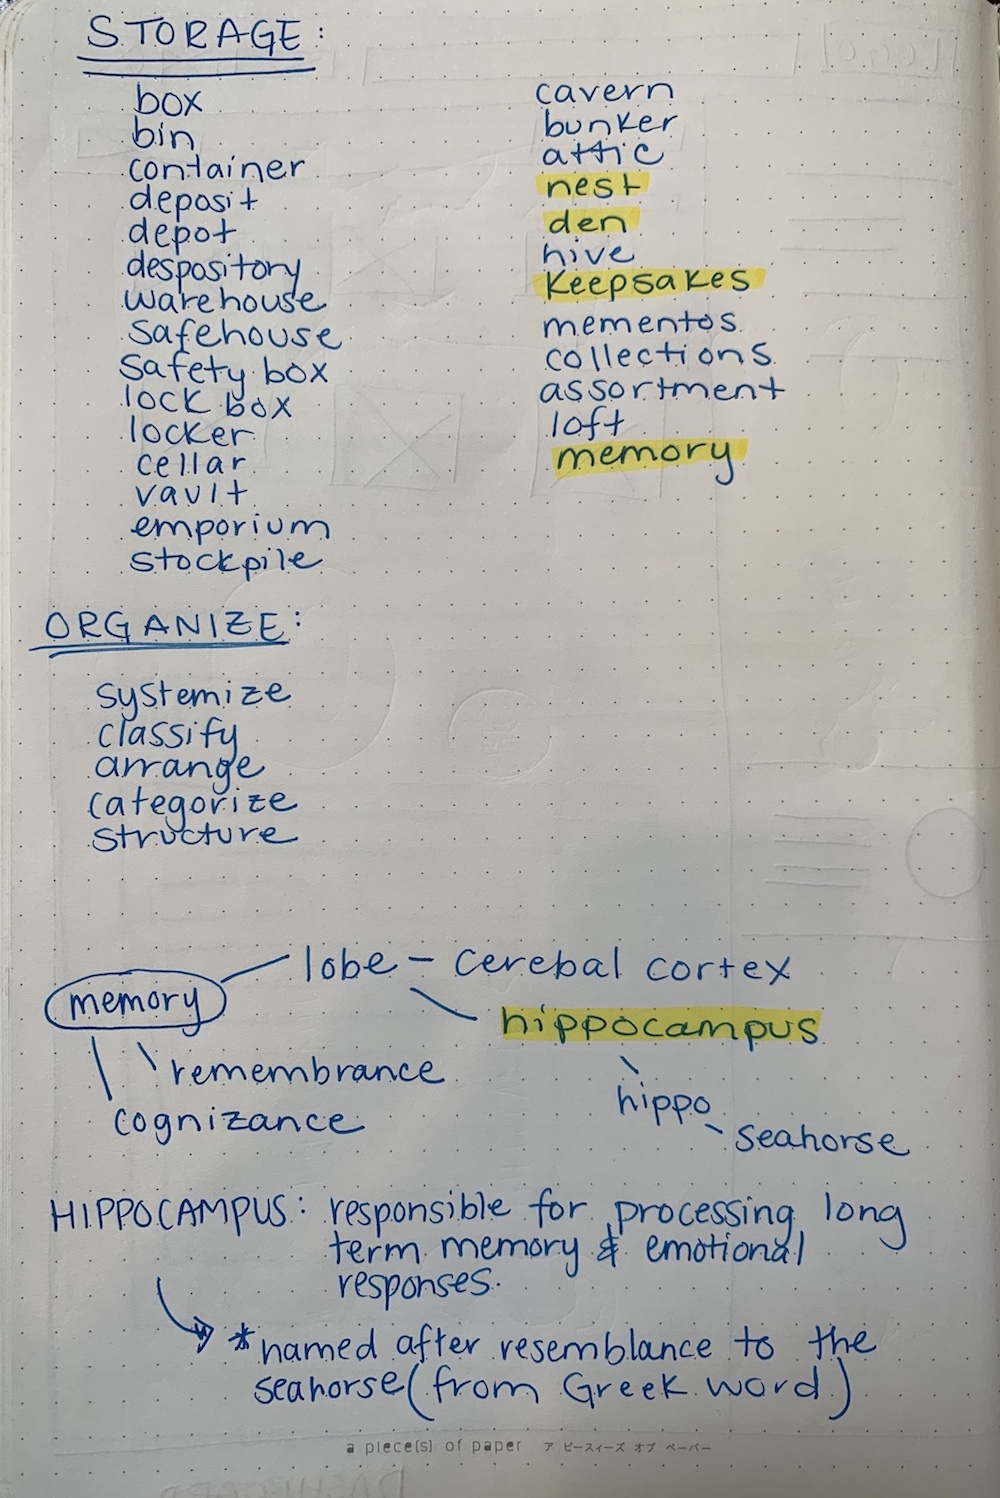 STORAGE:
box
bin
container
deposit
depot
despository
warehouse
safehouse
safety box
lock box
locker
cellar
vault
emporium
stockpile
cavern
bunker
attic
nest
den
hive
keepsakes
mementos
collections
assortment
loft
memory
ORGANIZE:
systemize
classify
arrange
categorize
structure
memory
lobe – cerebal cortex
hippocampus
remembrance
cognizance
hippo
seahorse
HIPPOCAMPUS: responsible for processing long
term memory & emotional
responses.
*named after resemblance to the
seahorse (from Greek word)
a piece(s) of paper ア ピースィーズ オブ ペーパー